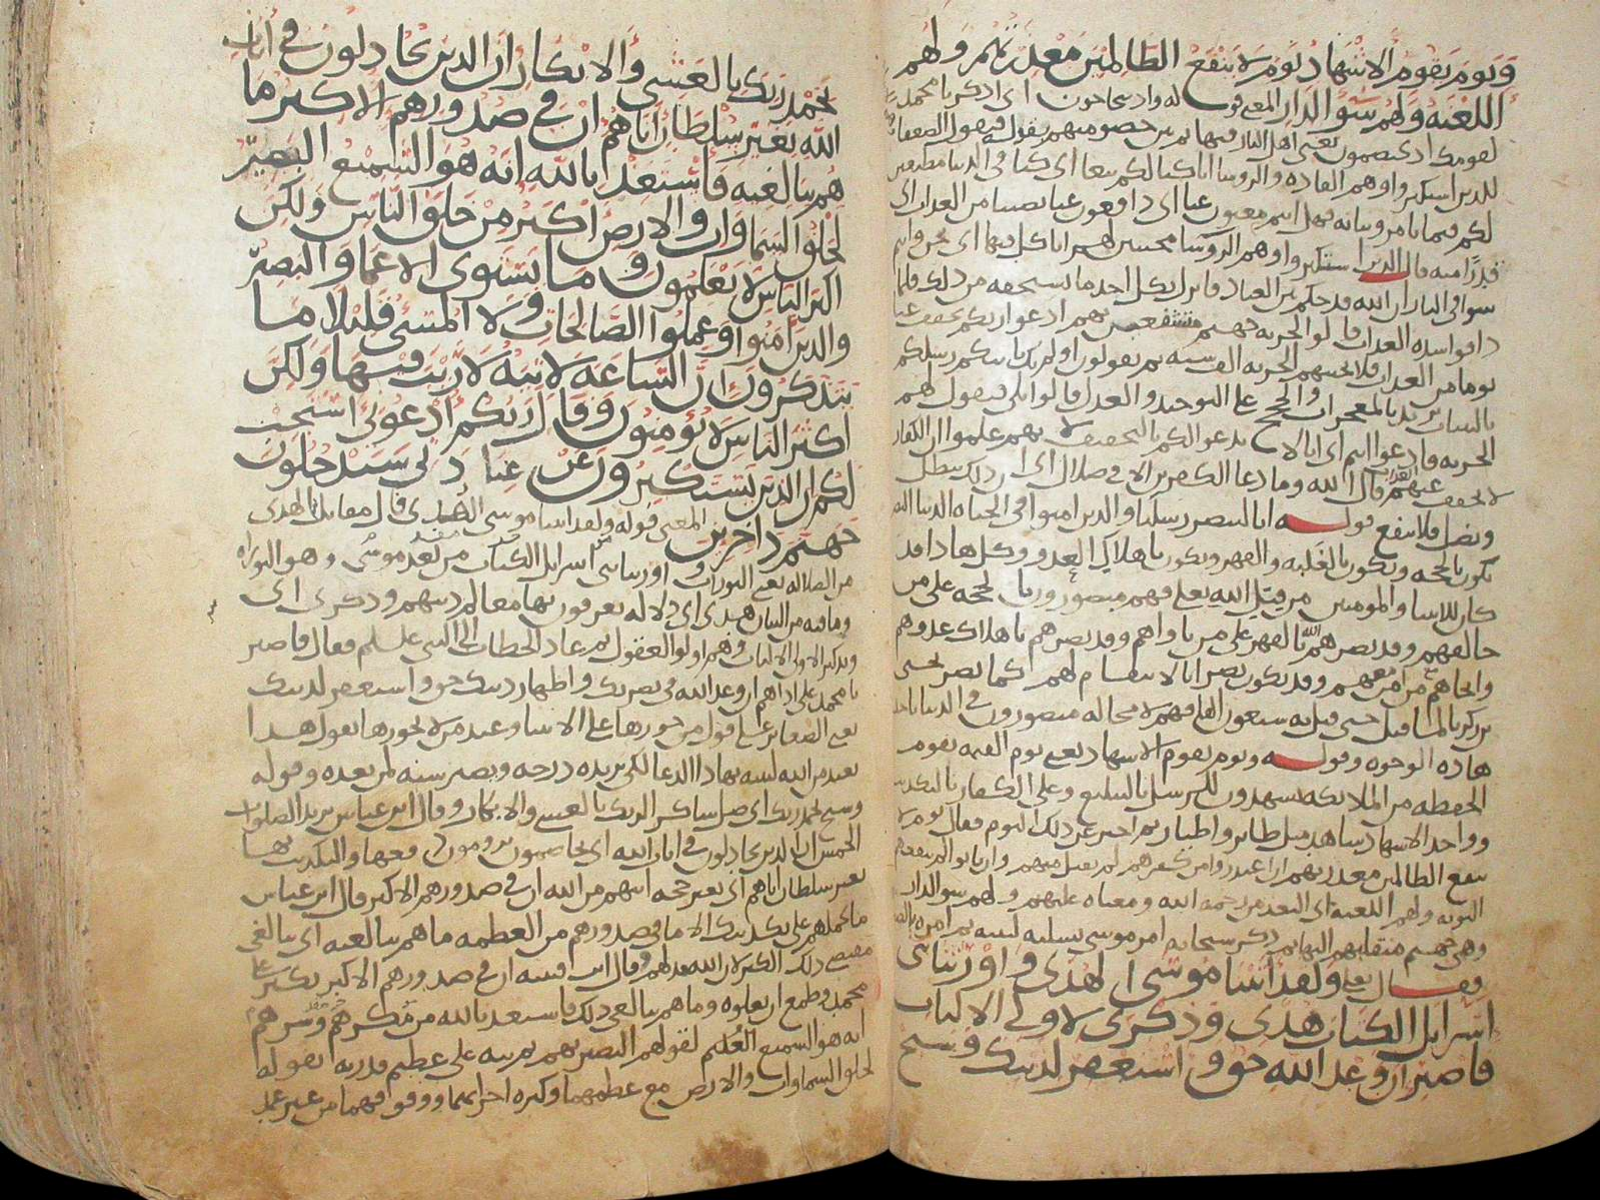 ويوم يقوم الاشهاد يوم لا ينفع الظالمين معذرتهم ولهم
اللعنه ولهم سوء الدار المعنى قوله واذ يتحاجون اى اذكر يا محمد
لقومك اذ يختصمون يعنى اهل النار فيها ثم بين خصومتهم بقوله فيقول الضعفا
للذين استكبروا وهم القاده والروسا انا كنا لكم تبعا اى كنا فى الدنيا مطيعين
لكم فيما فهل انتم مغنون عنا اى دافعون عنا نصيبا من العذاب اى
قدرا منه قال الذين استكبروا وهم الروسا مجيبين لهم انا كل فيها اى نحن وانتم
سوا فى النار ان الله قد حكم بين العباد فانزل بكل احد ما يستحقه من ذلك فلما
ذاقوا شده العذاب قالوا لخزنه جهنم بهم ادعوا ربكم يخفف عنا
يوما من العذاب فلا تجيبهم الخزنه ثم يقولون اولم تك تاتيكم رسلكم
بالبينات يريد بالمعجزات والحجج على التوحيد والعدل قالوا بلى فيقول لهم
الخزنه فادعوا انتم اى انا لا ندعو لكم بالتخفيف لانهم علموا ان الكفار
لا يخفف عنهم العذاب قال الله وما دعا الكفرين الا فى ضلال اى ان ذلك يبطل
ويضل فلا ينفع قوله انا لننصر رسلنا والذين امنوا فى الحياه الدنيا النصر
يكون بالحجه ويكون بالغلبه والقهر ويكون باهلاك العدو وكل هذا قد
كان للانبيا والمومنين من قبل الله تعلى فهم منصورون بالحجه على من
خالفهم وقد نصرهم الله بالقهر على من ناواهم وقد نصرهم باهلاك عدوهم
وانجاهم مع من امن معهم وقد يكون نصر انا لانتقام لهم كما نصر يحيى
بن زكريا لما قتل حتى قتل به سبعون الفا فهم لا محاله منصورون فى الدنيا باحد
هذه الوجوه وقوله ويوم يقوم الاشهاد يعنى يوم القيمه يقوم
الحفظه من الملائكه يشهدون للرسل بالتبليغ وعلى الكفار بالتكذيب
وواحد الاشهاد شاهد مثل طائر واطيار ثم اخبر عن ذلك اليوم فقال يوم لا
ينفع الظالمين معذرتهم اى ان اعتذروا من كفرهم لم يقبل منهم وان تابوا لم تنفعهم
التوبه ولهم اللعنه اى البعد من رحمه الله ومعناه عليهم ولهم سو الدار
وهى جهنم منقلبهم اليها ثم ذكر سبحانه امر موسى تسليه لنبيه ثم امره بالصبر
فقال تعلى ولقد اتينا موسى الهدى واورثنا بنى
اسرايل الكتاب هدى وذكرى لاولى الالباب
فاصبر ان وعد الله حق واستغفر لذنبك وسبح
بحمد ربك بالعشى والابكار ان الذين يجادلون فى ايات
الله بغير سلطان اتاهم ان فى صدورهم الا كبر ما
هم ببالغيه فاستعذ بالله انه هو السميع البصير
لخلق السماوات والارض اكبر من خلق الناس ولكن
اكثر الناس لا يعلمون وما يستوى الاعما والبصير
والذين امنوا وعملوا الصالحات ولا المسى قليلا ما
يتذكرون ان الساعه لاتيه لا ريب فيها ولكن
اكثر الناس لا يؤمنون وقال ربكم ادعونى استجب
لكم ان الذين يستكبرون عن عبادتى سيدخلون
جهنم داخرين المعنى قوله ولقد اتينا موسى الهدى قال مقاتل الهدى
من الضلاله يعنى التورات واورثنا بنى اسرايل الكتاب من بعد موسى وهو التوراه
وما فيه من البيان هدى اى دلاله يعرفون بها معالم دينهم وذكرى اى
وتذكير لاولى الالباب وهم اولو العقول ثم عاد الخطاب الى النبى عليه السلم فقال فاصبر
يا محمد على اذاهم ان وعد الله فى نصرتك واظهار دينك حق واستغفر لذنبك
يعنى الصغائر على قول من جوزها على الانبيا وعند من لا يجوزها يقول هذا
تعبد من الله لنبيه بهذا الدعا لكى يزيده درجه ويصير سنه لمن بعده وقوله
وسبح بحمد ربك اى صل شاكرا لربك بالعشى والابكار وقال ابن عباس يريد الصلوات
الخمس ان الذين يجادلون فى ايات الله اى يخاصمون يرومون دفعها والتكذيب بها
بغير سلطان اتاهم اى بغير حجه اتتهم من الله ان فى صدورهم الا كبر قال ابن عباس
ما يحملهم على تكذيبك الا ما فى صدورهم من العظمه ما هم ببالغيه اى ببالغى
مقتضى ذلك الكبر لان الله مذلهم وقال ابن قتيبه ان فى صدورهم الا كبر تكبر على
محمد وطمع ان يعلوه وما هم ببالغى ذلك فاستعذ بالله من مكرهم وشرهم
انه هو السميع العليم لقولهم البصير بهم ثم نبه على عظيم قدرته بقوله
لخلق السماوات والارض مع عظمهما وكبره اجزائهما ووقوفهما من غير عمد